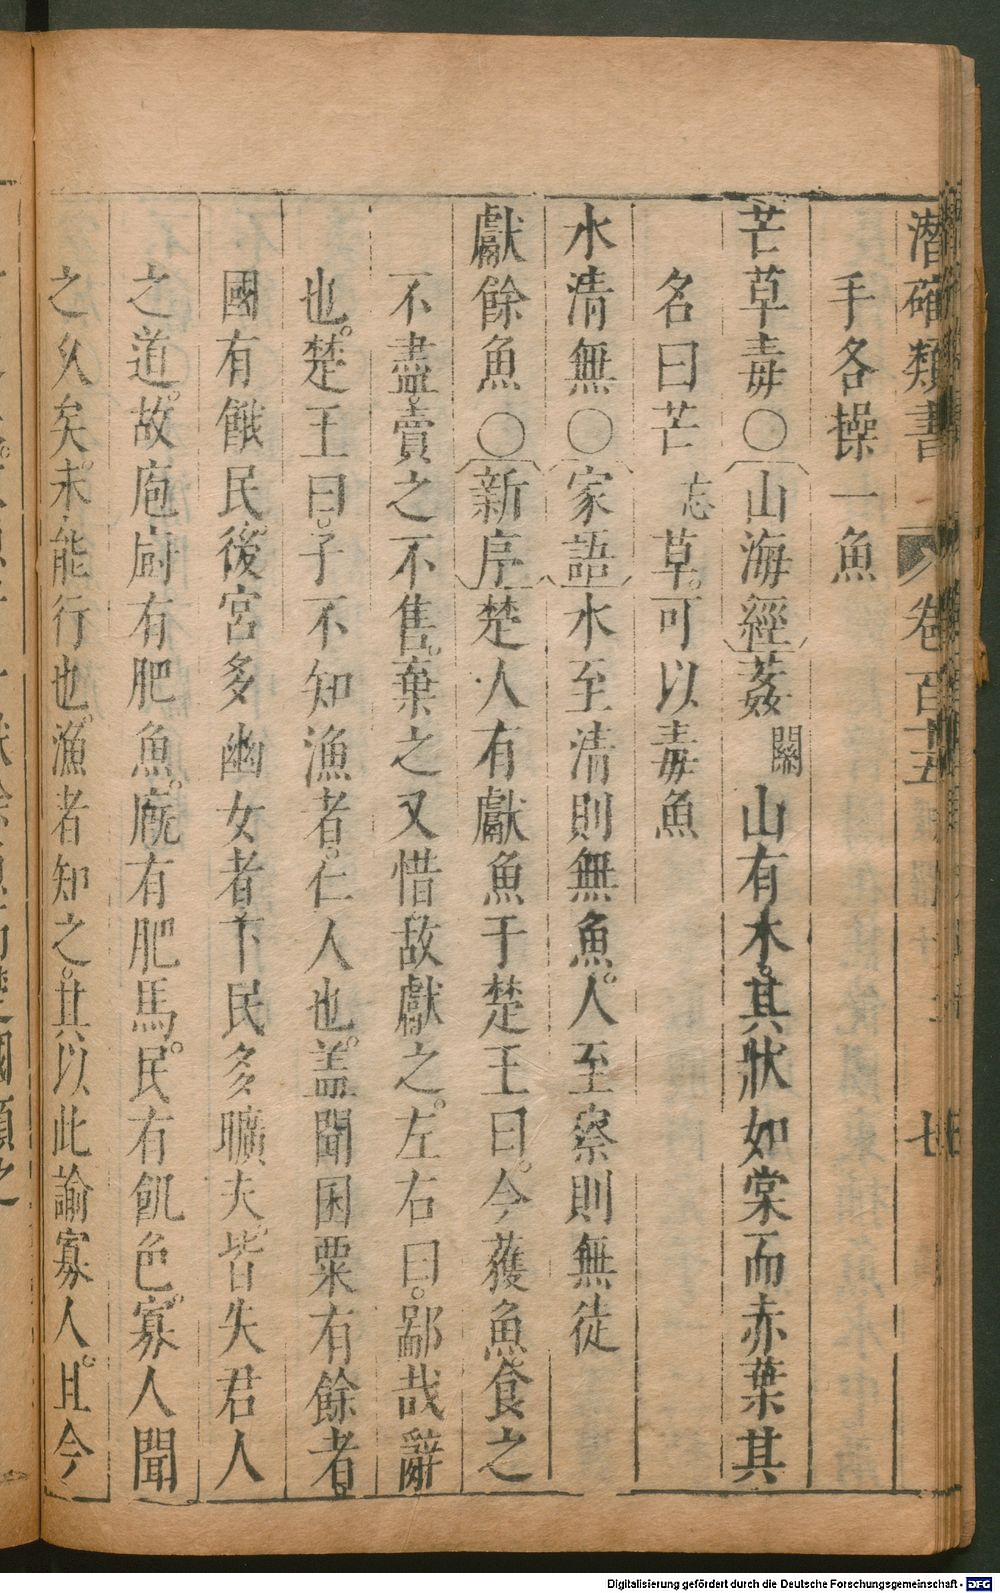 潛確類書 卷百十五 七
手各操一魚
芒草毒○山海經葌閼山有木。其狀如棠而赤葉其
名曰芒忘草。可以毒魚
水清無○家語水至清則無魚。人至察則無徒
獻餘魚○新序楚人有獻魚于楚王曰。今蒦魚。食之
不盡。賣之不售。棄之又惜故獻之。左右曰。鄙哉辭
也。楚王曰。子不知漁者。仁人也。盖聞囷粟有餘者。
國有餓民。後宮多幽女者下民多曠夫。皆失君人
之道。故庖廚有肥魚。廐有肥馬。民有飢色。寡人聞
之久矣。未能行也。漁者知之。其以此諭寡人。且今
Digitalisierung gefördert durch die Deutsche Forschungsgemeinschaft - DFG